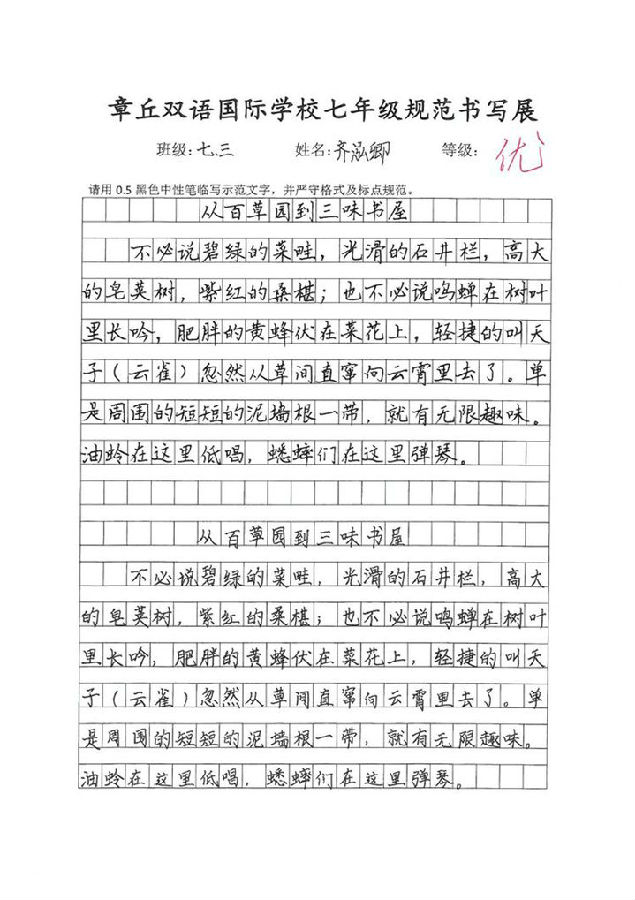 章丘双语国际学校七年级规范书写展
班级：七.三 姓名：齐泓卿 等级： 优
请用 0.5 黑色中性笔临写示范文字，并严守格式及标点规范。
从百草园到三味书屋
不必说碧绿的菜畦，光滑的石井栏，高大
的皂荚树，紫红的桑椹；也不必说鸣蝉在树叶
里长吟，肥胖的黄蜂伏在菜花上，轻捷的叫天
子（云雀）忽然从草间直窜向云霄里去了。单
是周围的短短的泥墙根一带，就有无限趣味。
油蛉在这里低唱，蟋蟀们在这里弹琴。
从百草园到三味书屋
不必说碧绿的菜畦，光滑的石井栏，高大
的皂荚树，紫红的桑椹；也不必说鸣蝉在树叶
里长吟，肥胖的黄蜂伏在菜花上，轻捷的叫天
子（云雀）忽然从草间直窜向云霄里去了。单
是周围的短短的泥墙根一带，就有无限趣味。
油蛉在这里低唱，蟋蟀们在这里弹琴。